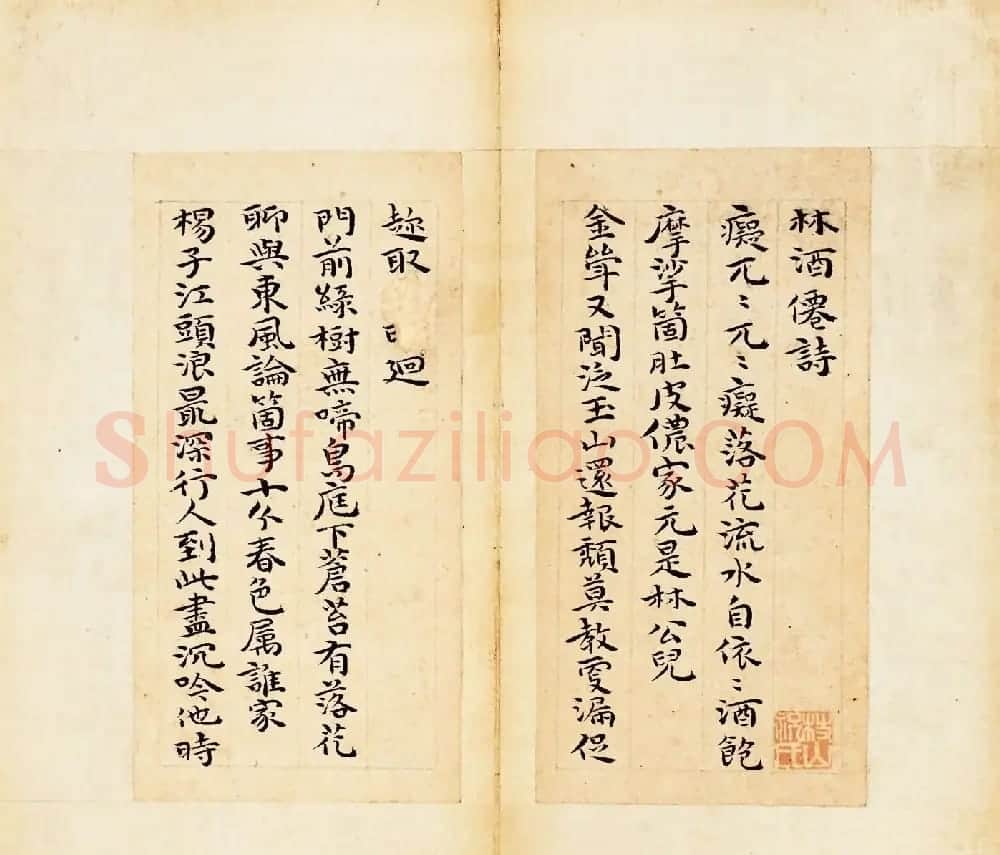 林酒僊詩
癡兀〻兀〻癡落花流水自依〻酒飽
摩挲箇肚皮儂家元是林公兒
金斝又聞泛玉山還報頹莫教更漏促
趂取廻
門前綠樹無啼鳥庭下蒼苔有落花
聊與東風論箇事十分春色属誰家
楊子江頭浪最深行人到此盡沉吟他時
Shufaziliao.COM